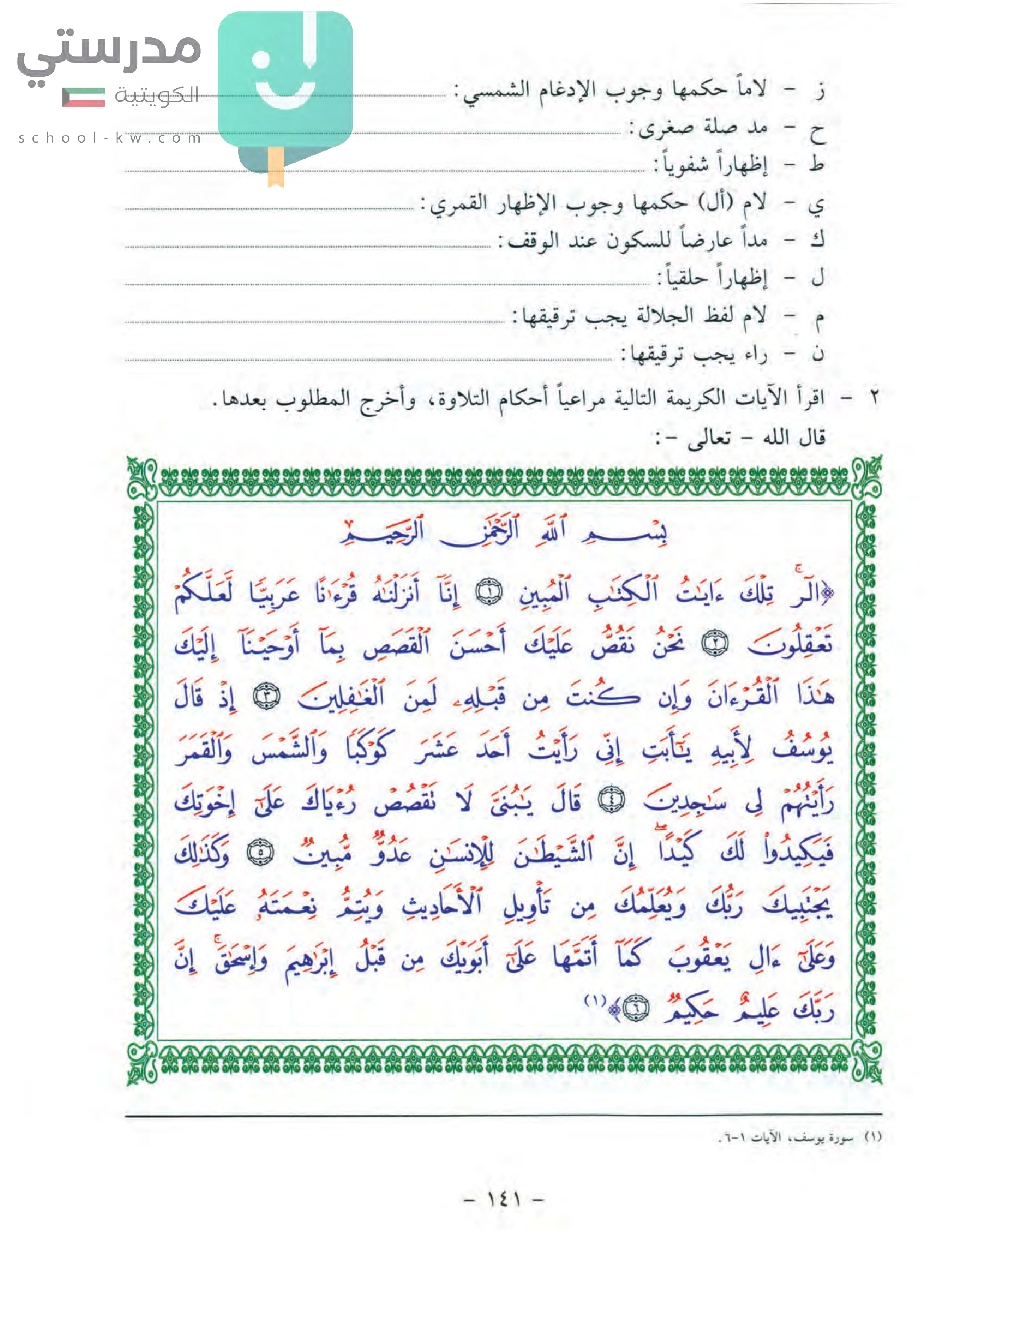 مدرستي
الكويتية
school-kw.com
ز - لاماً حكمها وجوب الإدغام الشمسي:
ح - مد صلة صغرى:
ط - إظهاراً شفوياً:
ي - لام (أل) حكمها وجوب الإظهار القمري:
ك - مداً عارضاً للسكون عند الوقف:
ل - إظهاراً حلقياً:
م - لام لفظ الجلالة يجب ترقيقها:
ن - راء يجب ترقيقها:
٢ - اقرأ الآيات الكريمة التالية مراعياً أحكام التلاوة، وأخرج المطلوب بعدها.
قال الله - تعالى -:
بِسْمِ اللَّهِ الرَّحْمَٰنِ الرَّحِيمِ
﴿الٓرۚ تِلْكَ ءَايَٰتُ ٱلْكِتَٰبِ ٱلْمُبِينِ ١ إِنَّآ أَنزَلْنَٰهُ قُرْءَٰنًا عَرَبِيًّا لَّعَلَّكُمْ
تَعْقِلُونَ ٢ نَحْنُ نَقُصُّ عَلَيْكَ أَحْسَنَ ٱلْقَصَصِ بِمَآ أَوْحَيْنَآ إِلَيْكَ
هَٰذَا ٱلْقُرْءَانَ وَإِن كُنتَ مِن قَبْلِهِۦ لَمِنَ ٱلْغَٰفِلِينَ ٣ إِذْ قَالَ
يُوسُفُ لِأَبِيهِ يَٰٓأَبَتِ إِنِّي رَأَيْتُ أَحَدَ عَشَرَ كَوْكَبًا وَٱلشَّمْسَ وَٱلْقَمَرَ
رَأَيْتُهُمْ لِي سَٰجِدِينَ ٤ قَالَ يَٰبُنَيَّ لَا تَقْصُصْ رُءْيَاكَ عَلَىٰٓ إِخْوَتِكَ
فَيَكِيدُوا۟ لَكَ كَيْدًاۖ إِنَّ ٱلشَّيْطَٰنَ لِلْإِنسَٰنِ عَدُوٌّ مُّبِينٌ ٥ وَكَذَٰلِكَ
يَجْتَبِيكَ رَبُّكَ وَيُعَلِّمُكَ مِن تَأْوِيلِ ٱلْأَحَادِيثِ وَيُتِمُّ نِعْمَتَهُۥ عَلَيْكَ
وَعَلَىٰٓ ءَالِ يَعْقُوبَ كَمَآ أَتَمَّهَا عَلَىٰٓ أَبَوَيْكَ مِن قَبْلُ إِبْرَٰهِيمَ وَإِسْحَٰقَۚ إِنَّ
رَبَّكَ عَلِيمٌ حَكِيمٌ ٦﴾(١)
(١) سورة يوسف، الآيات ١-٦.
- ١٤١ -